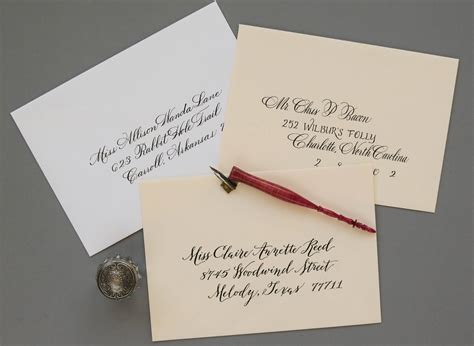 Miss Allison Wanda Lane
623 Rabbit Hole Trail
Carroll, Arkansas
Mr. Chris P Bacon
252 WILBUR'S FOLLY
Charlotte, North Carolina
2 8 2 0 2
Miss Claire Annette Reed
8745 Woodwind Street
Melody, Texas 77711